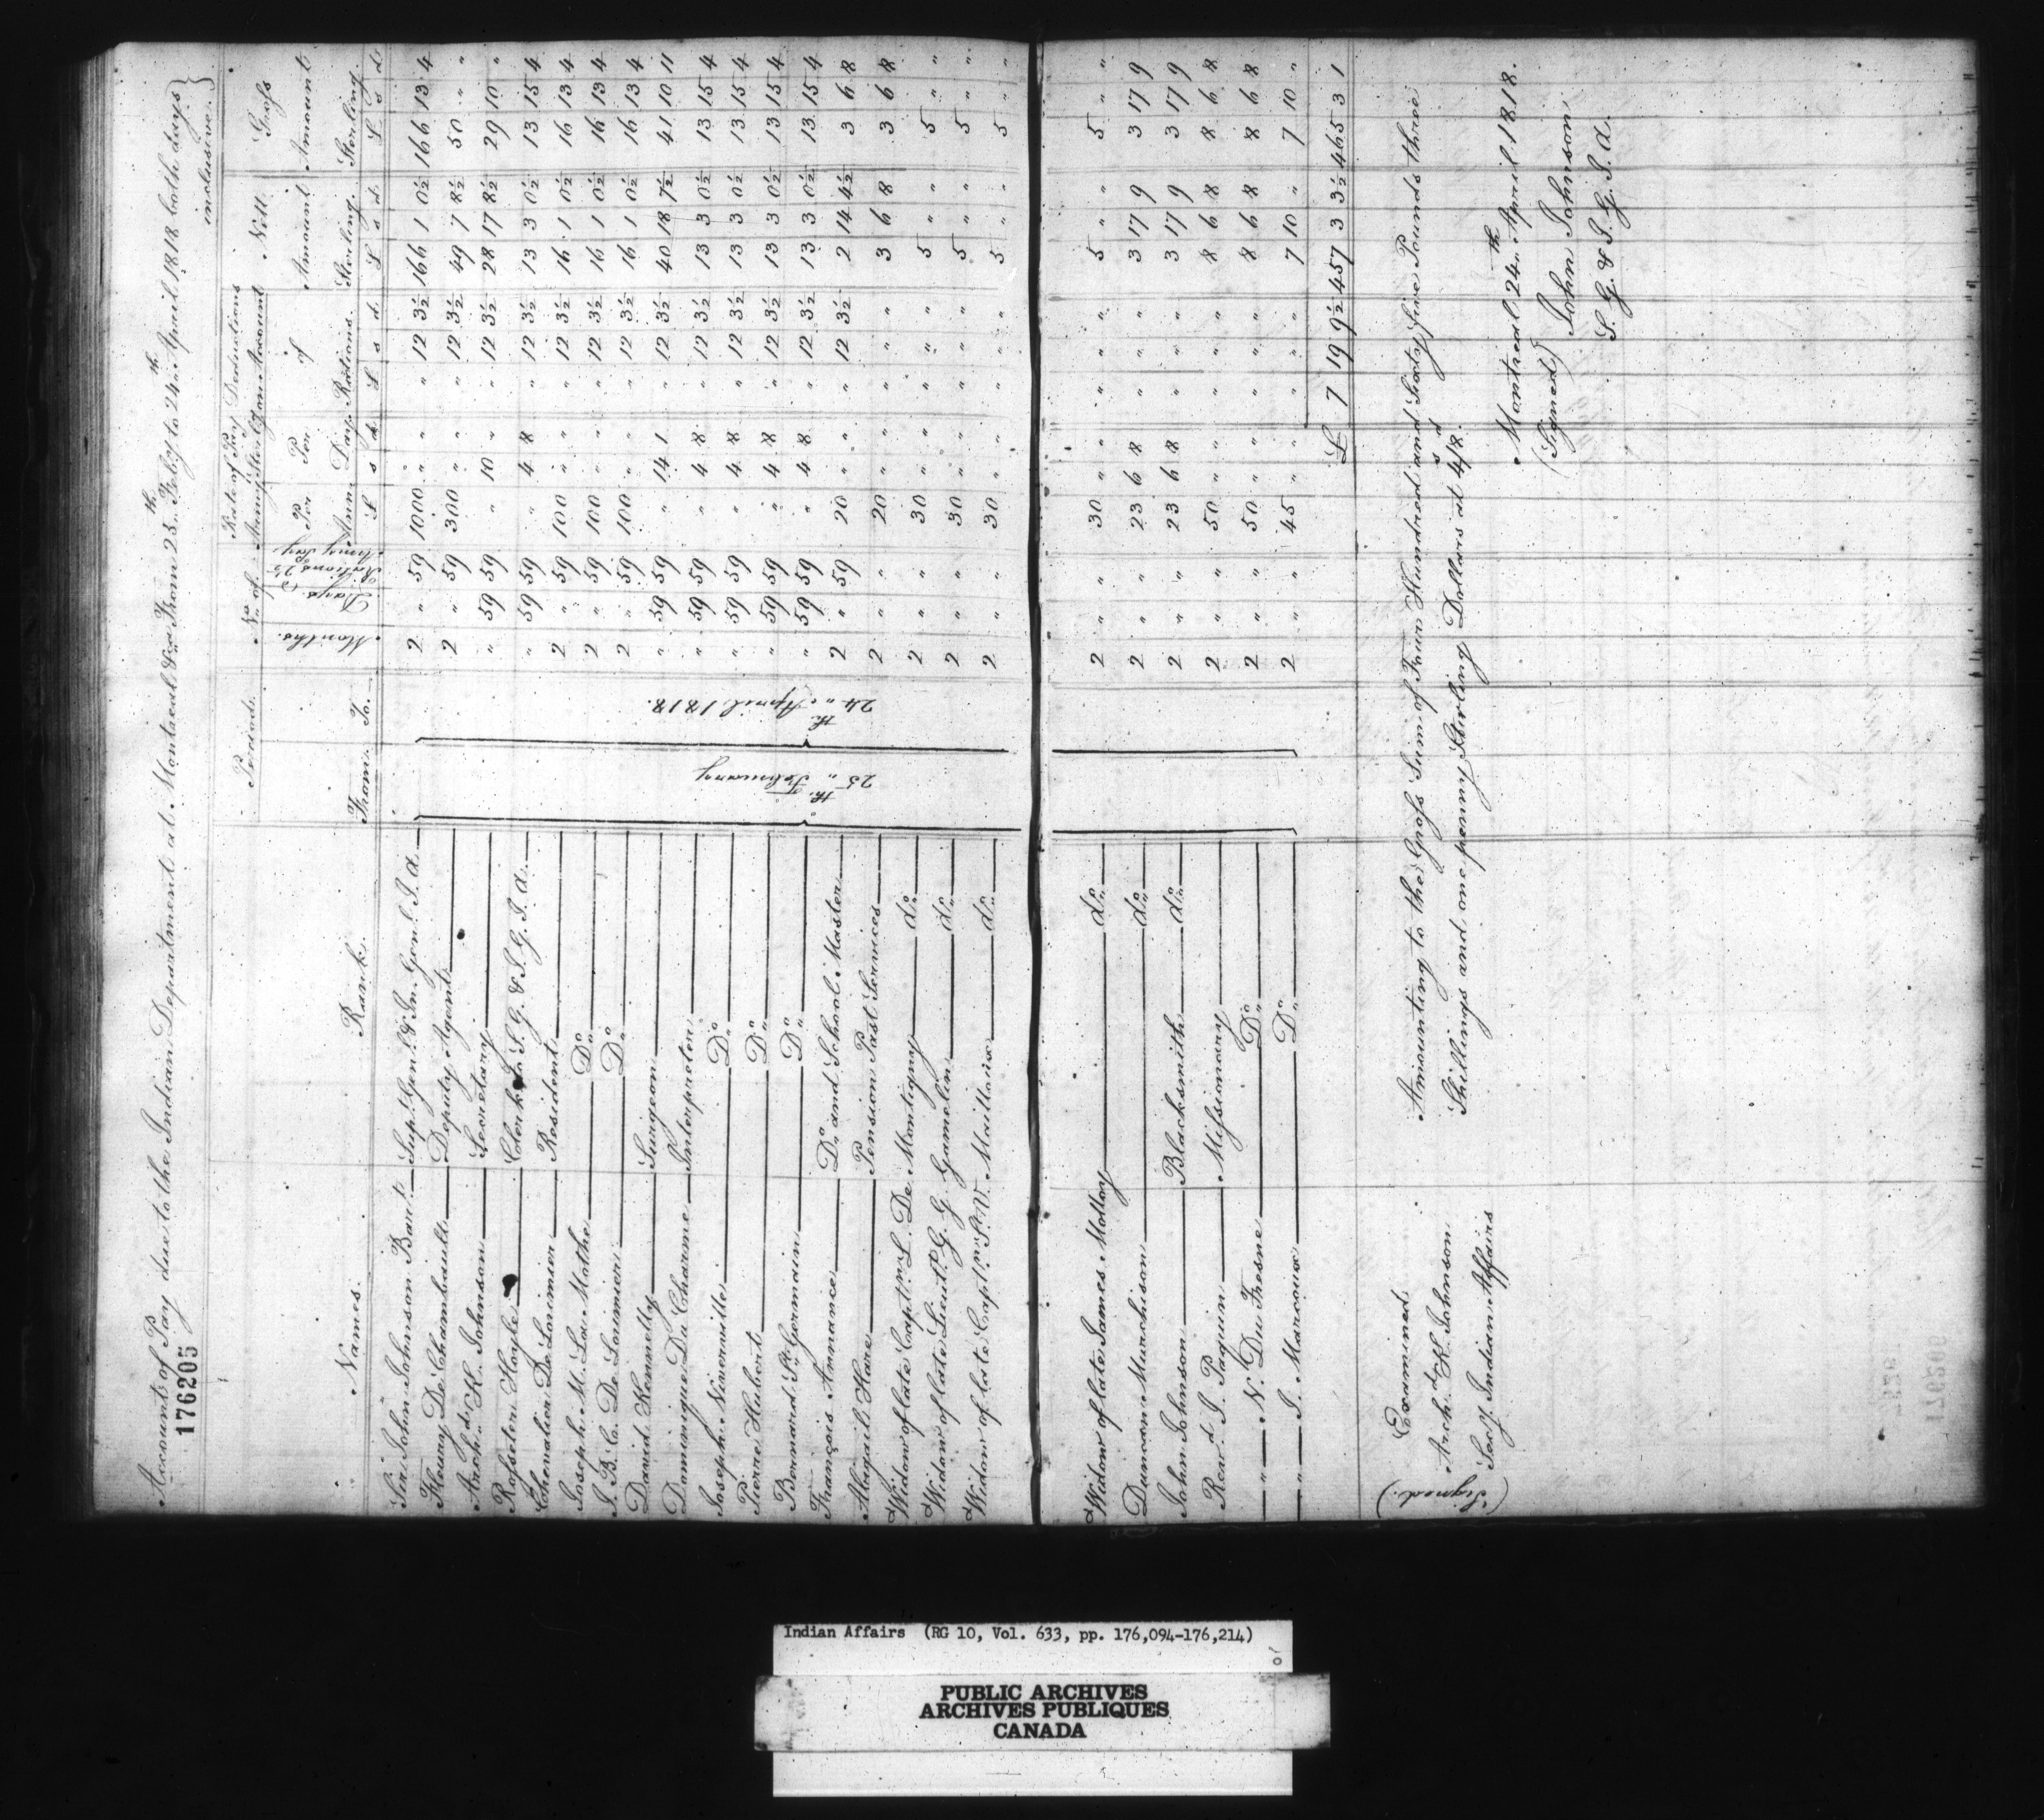 Accounts of Pay due to the Indian Department at Montreal &ca From 25th Feby to 24th April 1818 both days
inclusive.
176205
Names. Rank. Periods. No. of Rate of Pay Deductions Nett Gross
Army Sterling from Account Amount Amount
From To Months. Days. Rations Per Annm Per Day of Rations. Sterling. Sterling.
£ s d £ s d £ s d £ s d
25th February 24th April 1818.
Sir John Johnson Bart. Supt. Genl. & In. Genl. I. A. 2 " 59 1000 " " " 12 3½ 166 1 0½ 166 13 4
Fleury De Chambault Deputy Agent 2 " 59 300 " " " 12 3½ 49 7 8½ 50 " "
Archd. K. Johnson Secretary " 59 59 " 10 " " 12 3½ 28 17 8½ 29 10 "
Rosseter Hoyle Clerk to S. G. & I. G. I. A. " 59 59 " 4 8 " 12 3½ 13 3 0½ 13 15 4
Chevalier De Lorimier Resident 2 " 59 100 " " " 12 3½ 16 1 0½ 16 13 4
Joseph M. La Mothe Do. 2 " 59 100 " " " 12 3½ 16 1 0½ 16 13 4
J. B. C. De Lorimier Do. 2 " 59 100 " " " 12 3½ 16 1 0½ 16 13 4
David Kennelly Surgeon " 59 59 " 14 1 " 12 3½ 40 18 7½ 41 10 11
Dominique Du Charme Interpreter " 59 59 " 4 8 " 12 3½ 13 3 0½ 13 15 4
Joseph Niverville Do. " 59 59 " 4 8 " 12 3½ 13 3 0½ 13 15 4
Pierre Hubert Do. " 59 59 " 4 8 " 12 3½ 13 3 0½ 13 15 4
Bernard St. Germain Do. " 59 59 " 4 8 " 12 3½ 13 3 0½ 13 15 4
François Annance Do. and School Master 2 " 59 20 " " " 12 3½ 2 14 4½ 3 6 8
Abagail Hare Pension Past Services 2 " " 20 " " " " " 3 6 8 3 6 8
Widow of late Captn. L. De Montigny do. 2 " " 30 " " " " " 5 " " 5 " "
Widow of late Lieut. P. G. G. Gamelin do. 2 " " 30 " " " " " 5 " " 5 " "
Widow of late Captn. St. V. Mailloux do. 2 " " 30 " " " " " 5 " " 5 " "
Widow of late James Mollory do. 2 " " 30 " " " " " 5 " " 5 " "
Duncan Murchison do. 2 " " 23 6 8 " " " 3 17 9 3 17 9
John Johnson Blacksmith do. 2 " " 23 6 8 " " " 3 17 9 3 17 9
Revd. J. Paquin Missionary 2 " " 50 " " " " " 8 6 8 8 6 8
" N. Du Fresne Do. 2 " " 50 " " " " " 8 6 8 8 6 8
" J. Marcoux Do. 2 " " 45 " " " " " 7 10 " 7 10 "
£ 7 19 9½ 457 3 3½ 465 3 1
Amounting to the Gross Sum of Four Hundred and Sixty five Pounds three
Shillings and one penny Sterling Dollars at 4s/8d.
Examined.
(Signed.) Archd. K. Johnson
Secy. Indian Affairs
Montreal 24th April 1818.
(Signed) John Johnson
S. G. & I. G. I. A.
Indian Affairs (RG 10, Vol. 633, pp. 176,094-176,214)
PUBLIC ARCHIVES
ARCHIVES PUBLIQUES
CANADA